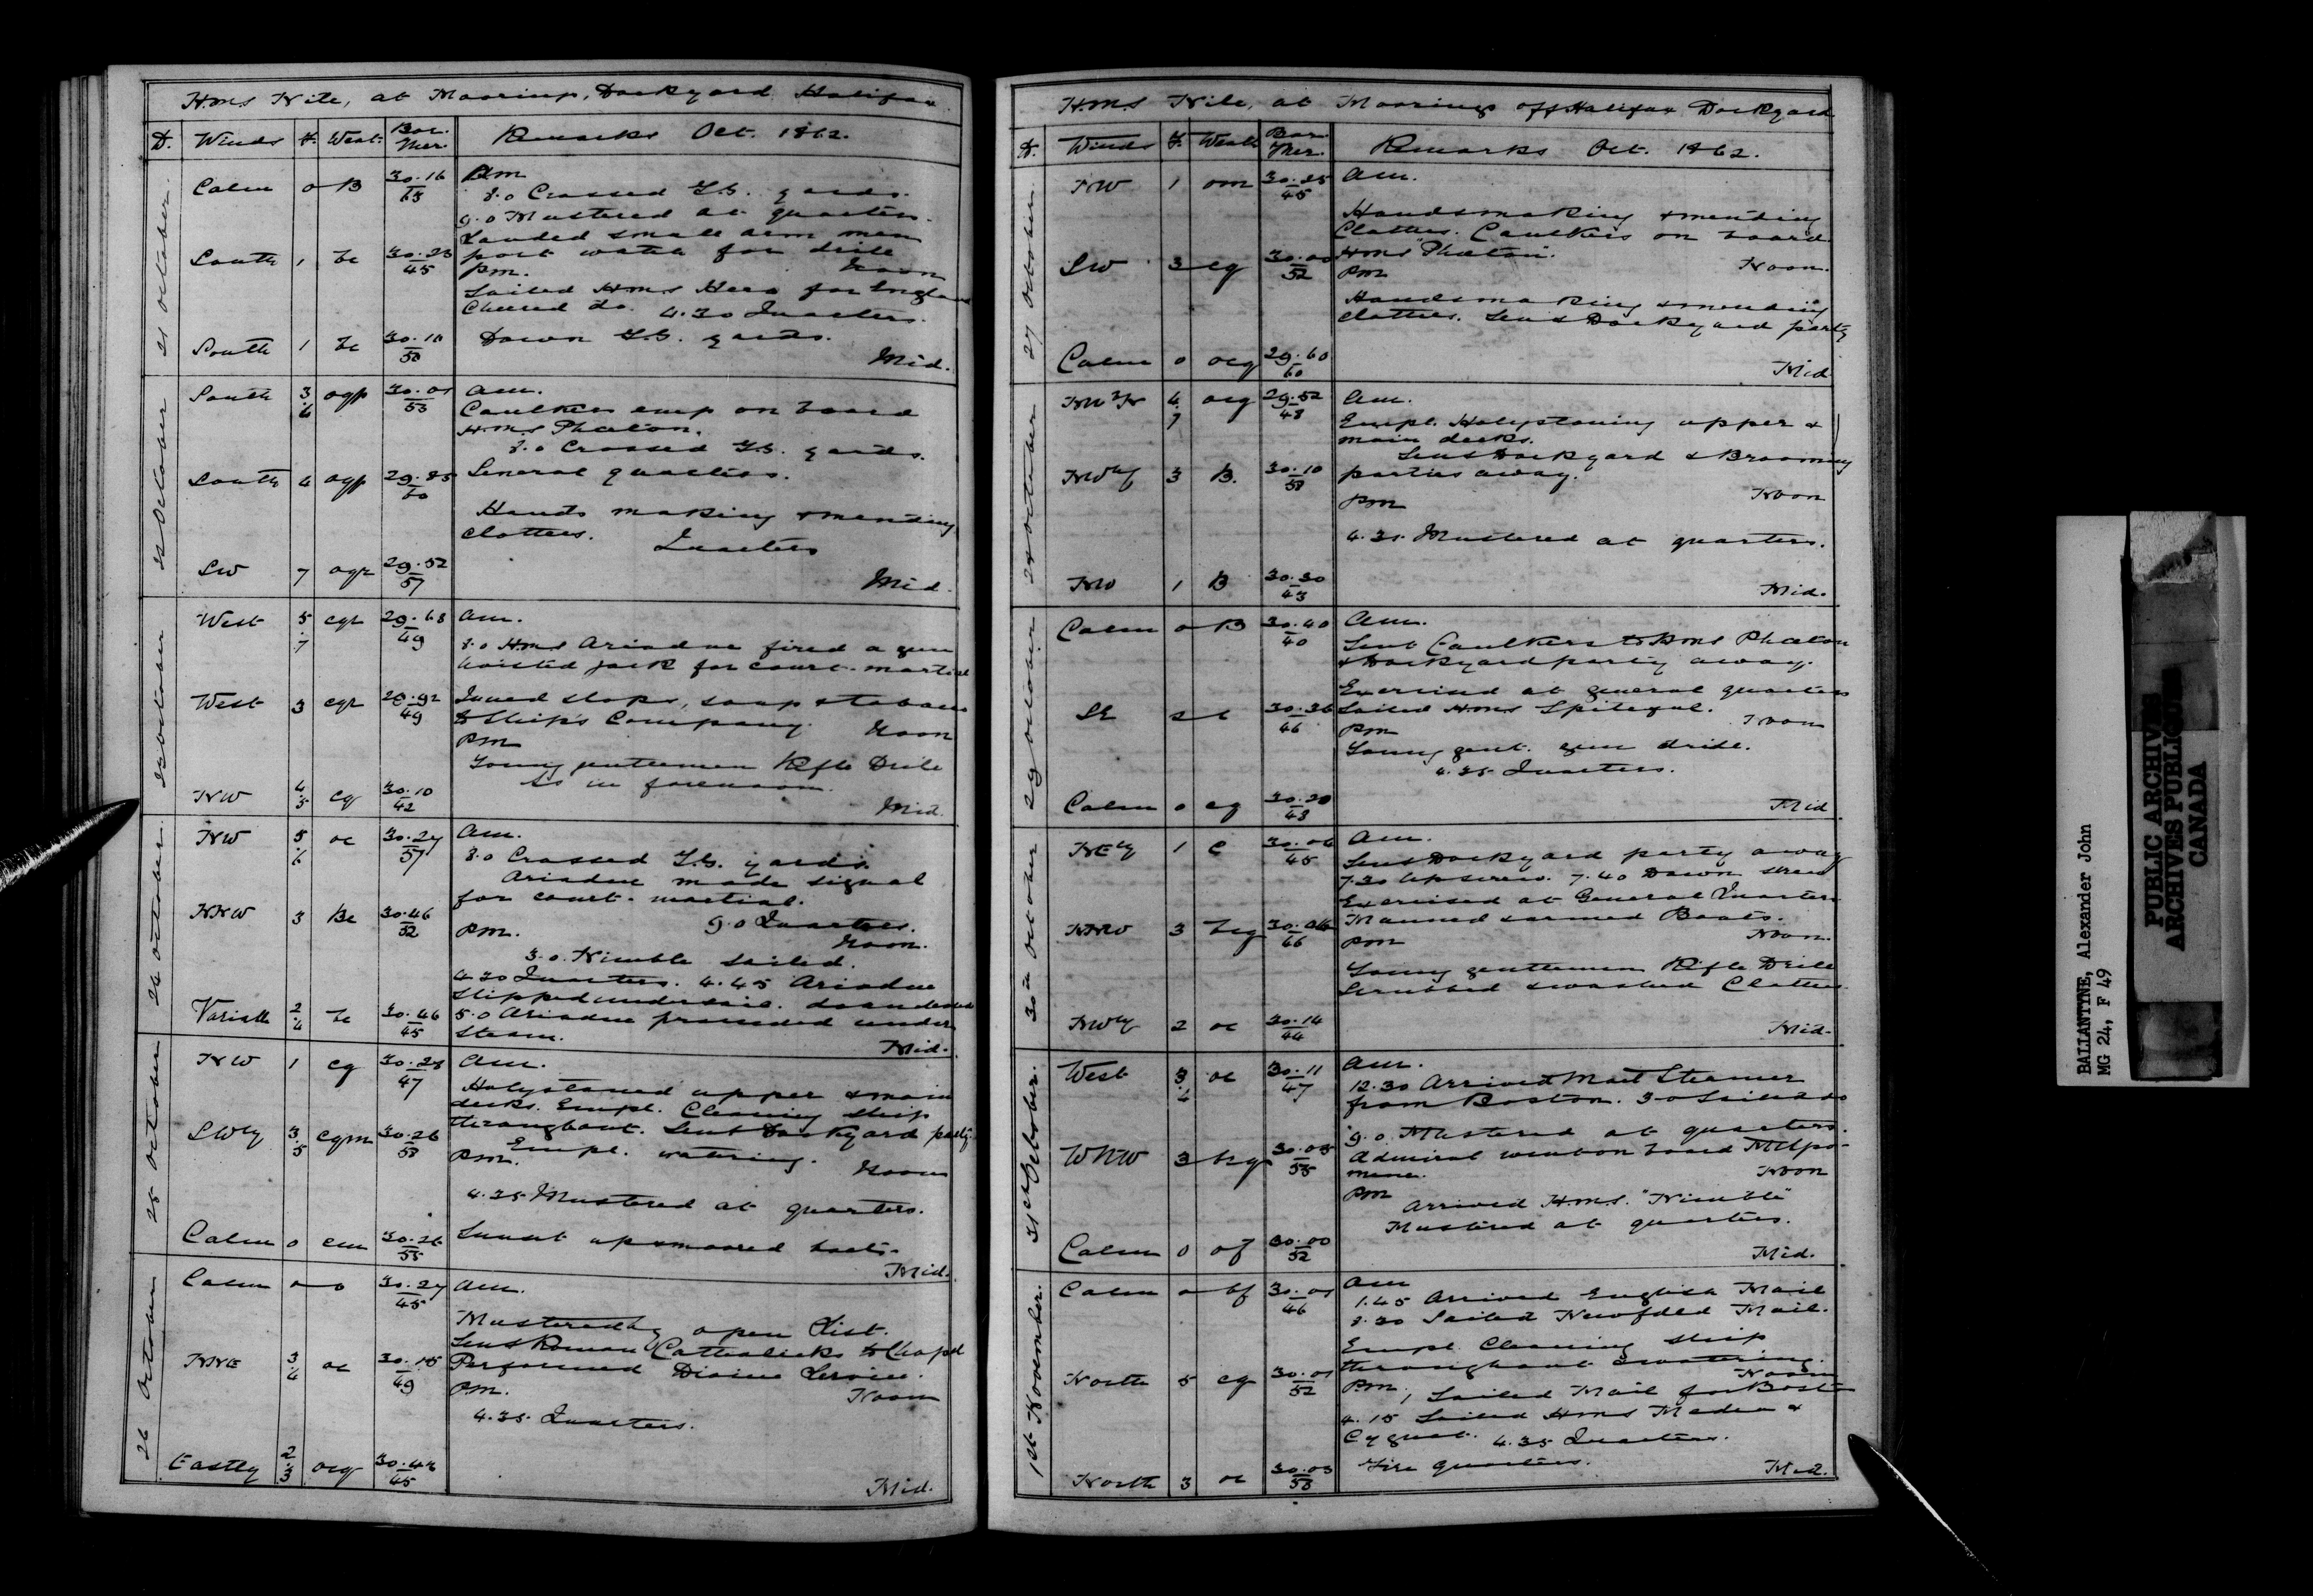 H.M.S Nile, at Moorings, Dockyard Halifax.
D. Winds F. Weat. Bar. Ther. Remarks Oct. 1862.
21 October
Calm 0 B 30.16
Am
8.0 Crossed T.G. yards.
9.0 Mustered at quarters.
Landed small arm men
South 1 bc 30.23 45 port watch for drill
Pm. Noon
Sailed H.M.S Hero for England
Cheered do. 4.30 Quarters.
South 1 bc 30.10 50 Down T.G. yards.
Mid.
22 October
South 3.6 ogp 30.01 53 Am.
Caulkers emp on board
H.M.S Phaeton.
8.0 Crossed T.G. yards.
South 4 ogp 29.85 60 General quarters.
Hands making & mending
Clothes. Quarters
SW 7 ogr 29.52 57
Mid.
23 October
West 5.7 cgr 29.68 49 Am.
8.0 H.M.S Ariadne fired a gun
hoisted jack for court-martial
West 3 cgr 29.92 49 Issued slops, soap & tobacco
to Ship's Company. Noon
Pm
Young gentlemen Rifle Drill
As in forenoon.
NW 4.5 cg 30.10 42
Mid.
24 October
NW 5.6 oc 30.27 57 Am.
8.0 Crossed T.G. yards
Ariadne made signal
for court-martial.
NNW 3 Bc 30.46 52 9.0 Quarters.
Pm. Noon.
3.0. Nimble sailed.
4.30 Quarters. 4.45 Ariadne
slipped under sail.
Variable 2.4 bc 30.46 45 5.0 Ariadne proceeded under
steam. Mid.
25 October
NW 1 cg 30.28 47 Am.
Holystoned upper & main
decks. Empl. Cleaning ship
throughout. Sent Dockyard party.
SWly 3.5 cgm 30.26 53 Empl. watering.
Pm. Noon
4.35 Mustered at quarters.
Calm 0 cm 30.26 55 Sunset up & moored boats.
Mid.
26 October
Calm 0 o 30.27 45 Am.
Mustered by open List.
Sent Roman Catholicks to Chapel
NNE 3.4 oc 30.15 49 Performed Divine Service.
Pm. Noon
4.35. Quarters.
Eastly 2.3 ocg 45
Mid.
H.M.S Nile, at Moorings off Halifax Dockyard
D. Winds F. Weath Bar. Ther. Remarks Oct. 1862.
27 October
NW 1 om 30.25 45 Am.
Hands making & mending
Clothes. Caulkers on board
SW 3 cg 30.00 52 H.M.S "Phaeton". Noon.
Pm
Hands making & mending
clothes. Sent Dockyard party
Calm 0 ocg 29.60 60
Mid
28 October
NWbN 4.7 ocg 29.52 48 Am.
Empl. Holystoning upper &
main decks.
Sent Dockyard & Brooming
NWly 3 B. 30.10 58 parties away. Noon
Pm
4.35. Mustered at quarters.
NW 1 B 30.30 43
Mid.
29 October
Calm 0 B 30.40 40 Am.
Sent Caulkers to H.M.S Phaeton
& Dockyard party away.
Exercised at general quarters
SE 2 c 30.36 46 Sailed H.M.S Spiteful. Noon
Pm
Young gent. gun drill.
4.35 Quarters.
Calm 0 cg 30.20 43
Mid
30th October
NEly 1 c 30.06 45 Am.
Sent Dockyard party away
7.30 Up screw. 7.40 Down screw
Exercised at General Quarters
NNW 3 bcg 30.06 66 Manned & armed Boats.
Pm Noon.
Young gentlemen Rifle Drill
Scrubbed & washed Clothes.
NWly 2 oc 30.14 44
Mid.
31st October.
West 3.4 oc 30.11 47 Am.
12.30 Arrived Mail Steamer
from Boston. 3.0 Sailed do
9.0. Mustered at quarters.
WNW 3 bcg 30.05 55 Admiral went on board Melpo-
mene. Noon
Pm
Arrived H.M.S. "Nimble"
Mustered at quarters.
Calm 0 of 30.00 52
Mid.
1st November.
Calm 0 bf 30.01 46 Am
1.45 Arrived English Mail
8.30 Sailed Newfdld Mail.
Empl. Cleaning ship
throughout & watering.
North 5 cg 30.01 52 Noon
Pm. 1 Sailed Mail for Boston
4.15 Sailed H.M.S Medea &
Cygnet. 4.35 Quarters.
Fire quarters.
North 3 oc 30.03 53
Mid.
BALLANTYNE, Alexander John
MG 24, F 49
PUBLIC ARCHIVES
ARCHIVES PUBLIQUES
CANADA